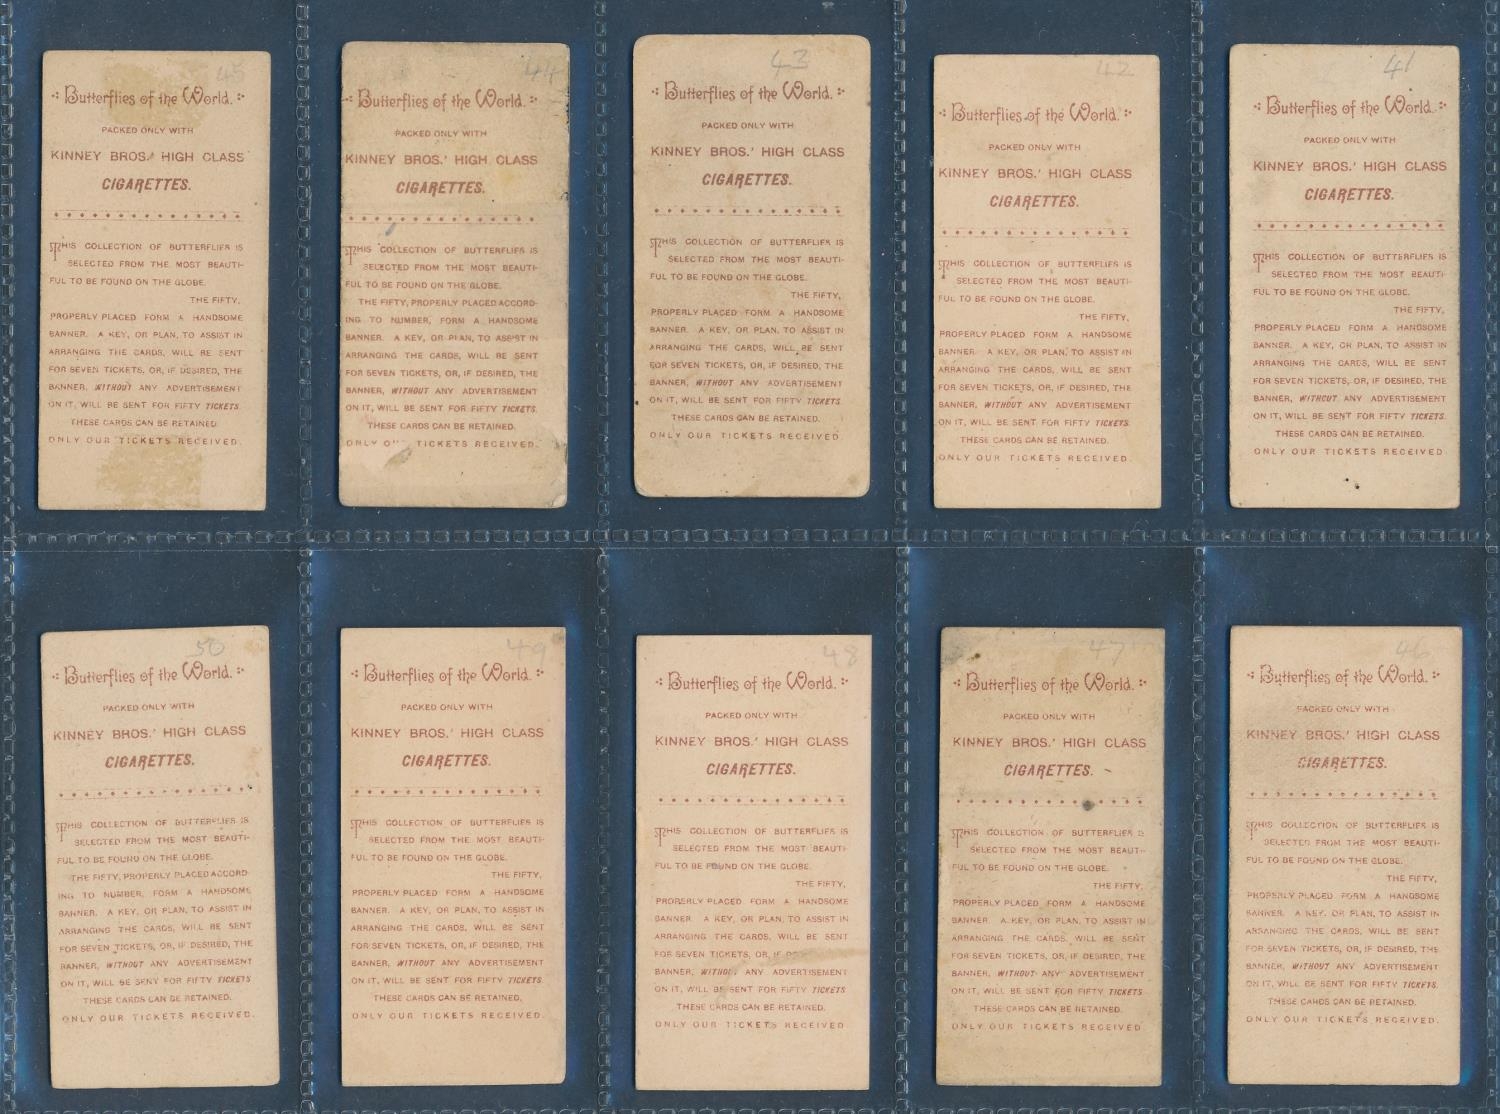 45
Butterflies of the World.
PACKED ONLY WITH
KINNEY BROS.' HIGH CLASS
CIGARETTES.
THIS COLLECTION OF BUTTERFLIES IS
SELECTED FROM THE MOST BEAUTI-
FUL TO BE FOUND ON THE GLOBE.
THE FIFTY,
PROPERLY PLACED FORM A HANDSOME
BANNER. A KEY, OR PLAN, TO ASSIST IN
ARRANGING THE CARDS, WILL BE SENT
FOR SEVEN TICKETS, OR, IF DESIRED, THE
BANNER, WITHOUT ANY ADVERTISEMENT
ON IT, WILL BE SENT FOR FIFTY TICKETS.
THESE CARDS CAN BE RETAINED.
ONLY OUR TICKETS RECEIVED.
44
Butterflies of the World.
PACKED ONLY WITH
KINNEY BROS.' HIGH CLASS
CIGARETTES.
THIS COLLECTION OF BUTTERFLIES IS
SELECTED FROM THE MOST BEAUTI-
FUL TO BE FOUND ON THE GLOBE.
THE FIFTY, PROPERLY PLACED ACCORD-
ING TO NUMBER, FORM A HANDSOME
BANNER. A KEY, OR PLAN, TO ASSIST IN
ARRANGING THE CARDS, WILL BE SENT
FOR SEVEN TICKETS, OR, IF DESIRED, THE
BANNER, WITHOUT ANY ADVERTISEMENT
ON IT, WILL BE SENT FOR FIFTY TICKETS.
THESE CARDS CAN BE RETAINED.
ONLY TICKETS RECEIVED.
43
Butterflies of the World.
PACKED ONLY WITH
KINNEY BROS.' HIGH CLASS
CIGARETTES.
THIS COLLECTION OF BUTTERFLIES IS
SELECTED FROM THE MOST BEAUTI-
FUL TO BE FOUND ON THE GLOBE.
THE FIFTY,
PROPERLY PLACED FORM A HANDSOME
BANNER. A KEY, OR PLAN, TO ASSIST IN
ARRANGING THE CARDS, WILL BE SENT
FOR SEVEN TICKETS, OR, IF DESIRED, THE
BANNER, WITHOUT ANY ADVERTISEMENT
ON IT, WILL BE SENT FOR FIFTY TICKETS.
THESE CARDS CAN BE RETAINED.
ONLY OUR TICKETS RECEIVED.
42
Butterflies of the World.
PACKED ONLY WITH
KINNEY BROS.' HIGH CLASS
CIGARETTES.
THIS COLLECTION OF BUTTERFLIES IS
SELECTED FROM THE MOST BEAUTI-
FUL TO BE FOUND ON THE GLOBE.
THE FIFTY,
PROPERLY PLACED FORM A HANDSOME
BANNER. A KEY, OR PLAN, TO ASSIST IN
ARRANGING THE CARDS, WILL BE SENT
FOR SEVEN TICKETS, OR, IF DESIRED, THE
BANNER, WITHOUT ANY ADVERTISEMENT
ON IT, WILL BE SENT FOR FIFTY TICKETS.
THESE CARDS CAN BE RETAINED.
ONLY OUR TICKETS RECEIVED.
41
Butterflies of the World.
PACKED ONLY WITH
KINNEY BROS.' HIGH CLASS
CIGARETTES.
THIS COLLECTION OF BUTTERFLIES IS
SELECTED FROM THE MOST BEAUTI-
FUL TO BE FOUND ON THE GLOBE.
THE FIFTY,
PROPERLY PLACED FORM A HANDSOME
BANNER. A KEY, OR PLAN, TO ASSIST IN
ARRANGING THE CARDS, WILL BE SENT
FOR SEVEN TICKETS, OR, IF DESIRED, THE
BANNER, WITHOUT ANY ADVERTISEMENT
ON IT, WILL BE SENT FOR FIFTY TICKETS.
THESE CARDS CAN BE RETAINED.
ONLY OUR TICKETS RECEIVED.
50
Butterflies of the World.
PACKED ONLY WITH
KINNEY BROS.' HIGH CLASS
CIGARETTES.
THIS COLLECTION OF BUTTERFLIES IS
SELECTED FROM THE MOST BEAUTI-
FUL TO BE FOUND ON THE GLOBE.
THE FIFTY, PROPERLY PLACED ACCORD-
ING TO NUMBER, FORM A HANDSOME
BANNER. A KEY, OR PLAN, TO ASSIST IN
ARRANGING THE CARDS, WILL BE SENT
FOR SEVEN TICKETS, OR, IF DESIRED, THE
BANNER, WITHOUT ANY ADVERTISEMENT
ON IT, WILL BE SENT FOR FIFTY TICKETS.
THESE CARDS CAN BE RETAINED.
ONLY OUR TICKETS RECEIVED.
49
Butterflies of the World.
PACKED ONLY WITH
KINNEY BROS.' HIGH CLASS
CIGARETTES.
THIS COLLECTION OF BUTTERFLIES IS
SELECTED FROM THE MOST BEAUTI-
FUL TO BE FOUND ON THE GLOBE.
THE FIFTY,
PROPERLY PLACED FORM A HANDSOME
BANNER. A KEY, OR PLAN, TO ASSIST IN
ARRANGING THE CARDS, WILL BE SENT
FOR SEVEN TICKETS, OR, IF DESIRED, THE
BANNER, WITHOUT ANY ADVERTISEMENT
ON IT, WILL BE SENT FOR FIFTY TICKETS.
THESE CARDS CAN BE RETAINED,
ONLY OUR TICKETS RECEIVED.
48
Butterflies of the World.
PACKED ONLY WITH
KINNEY BROS.' HIGH CLASS
CIGARETTES.
THIS COLLECTION OF BUTTERFLIES IS
SELECTED FROM THE MOST BEAUTI-
FUL TO BE FOUND ON THE GLOBE.
THE FIFTY,
PROPERLY PLACED FORM A HANDSOME
BANNER. A KEY, OR PLAN, TO ASSIST IN
ARRANGING THE CARDS, WILL BE SENT
FOR SEVEN TICKETS, OR, IF THE
BANNER, WITHOUT ANY ADVERTISEMENT
ON IT, WILL BE SENT FOR FIFTY TICKETS.
THESE CARDS CAN BE RETAINED.
ONLY OUR TICKETS RECEIVED
47
Butterflies of the World.
PACKED ONLY WITH
KINNEY BROS.' HIGH CLASS
CIGARETTES.
THIS COLLECTION OF BUTTERFLIES IS
SELECTED FROM THE MOST BEAUTI-
FUL TO BE FOUND ON THE GLOBE.
THE FIFTY,
PROPERLY PLACED FORM A HANDSOME
BANNER. A KEY, OR PLAN, TO ASSIST IN
ARRANGING THE CARDS, WILL BE SENT
FOR SEVEN TICKETS, OR, IF DESIRED, THE
BANNER, WITHOUT ANY ADVERTISEMENT
ON IT, WILL BE SENT FOR FIFTY TICKETS
THESE CARDS CAN BE RETAINED.
ONLY OUR TICKETS RECEIVED.
46
Butterflies of the World.
PACKED ONLY WITH
KINNEY BROS.' HIGH CLASS
CIGARETTES.
THIS COLLECTION OF BUTTERFLIES IS
SELECTED FROM THE MOST BEAUTI-
FUL TO BE FOUND ON THE GLOBE.
THE FIFTY,
PROPERLY PLACED FORM A HANDSOME
BANNER. A KEY, OR PLAN, TO ASSIST IN
ARRANGING THE CARDS, WILL BE SENT
FOR SEVEN TICKETS, OR, IF DESIRED, THE
BANNER, WITHOUT ANY ADVERTISEMENT
ON IT, WILL BE SENT FOR FIFTY TICKETS.
THESE CARDS CAN BE RETAINED.
ONLY OUR TICKETS RECEIVED.